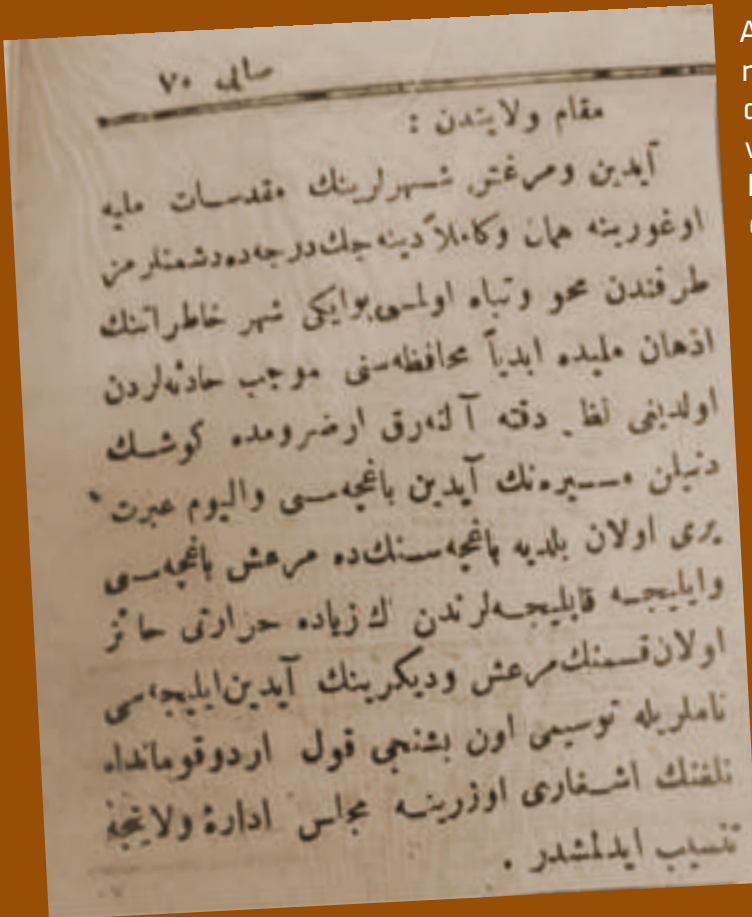 صایی ٧٠
مقام ولایتدن :
آیدین ومرعش شـهرلرینك مقدسـات ملیه
اوغورینه همان وكاملاً دینه جك درجه ده دشمنلرمز
طرفندن محو وتباه اولمسی بوایكی شهر خاطراتنك
اذهان ملیده ابدیاً محافظه سنی موجب حادثه لردن
اولدیغی نظر دقته آلنه رق ارضرومده كوشـك
دنیلن مسیره نك آیدین باغچه سی والیوم عبرت
یری اولان بلدیه باغچه سنك ده مرعش باغچه سی
وایلیجـه قاپلیجـه لرندن اك زیاده حرارتی حائز
اولان قسمنك مرعش ودیكرینك آیدین ایلیجه سی
ناملریله توسیمی اون بشنجی قول اردو قوماندا
نلغنك اشـعاری اوزرینـه مجلس ادارۀ ولایتجه
تنسیب ایدلمشدر .
A